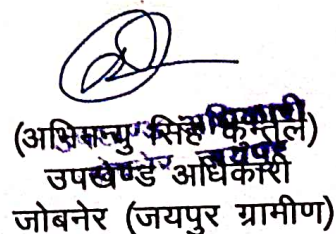 (अभिमन्यु सिंह कुन्तल)
उपखण्ड अधिकारी
जोबनेर (जयपुर ग्रामीण)